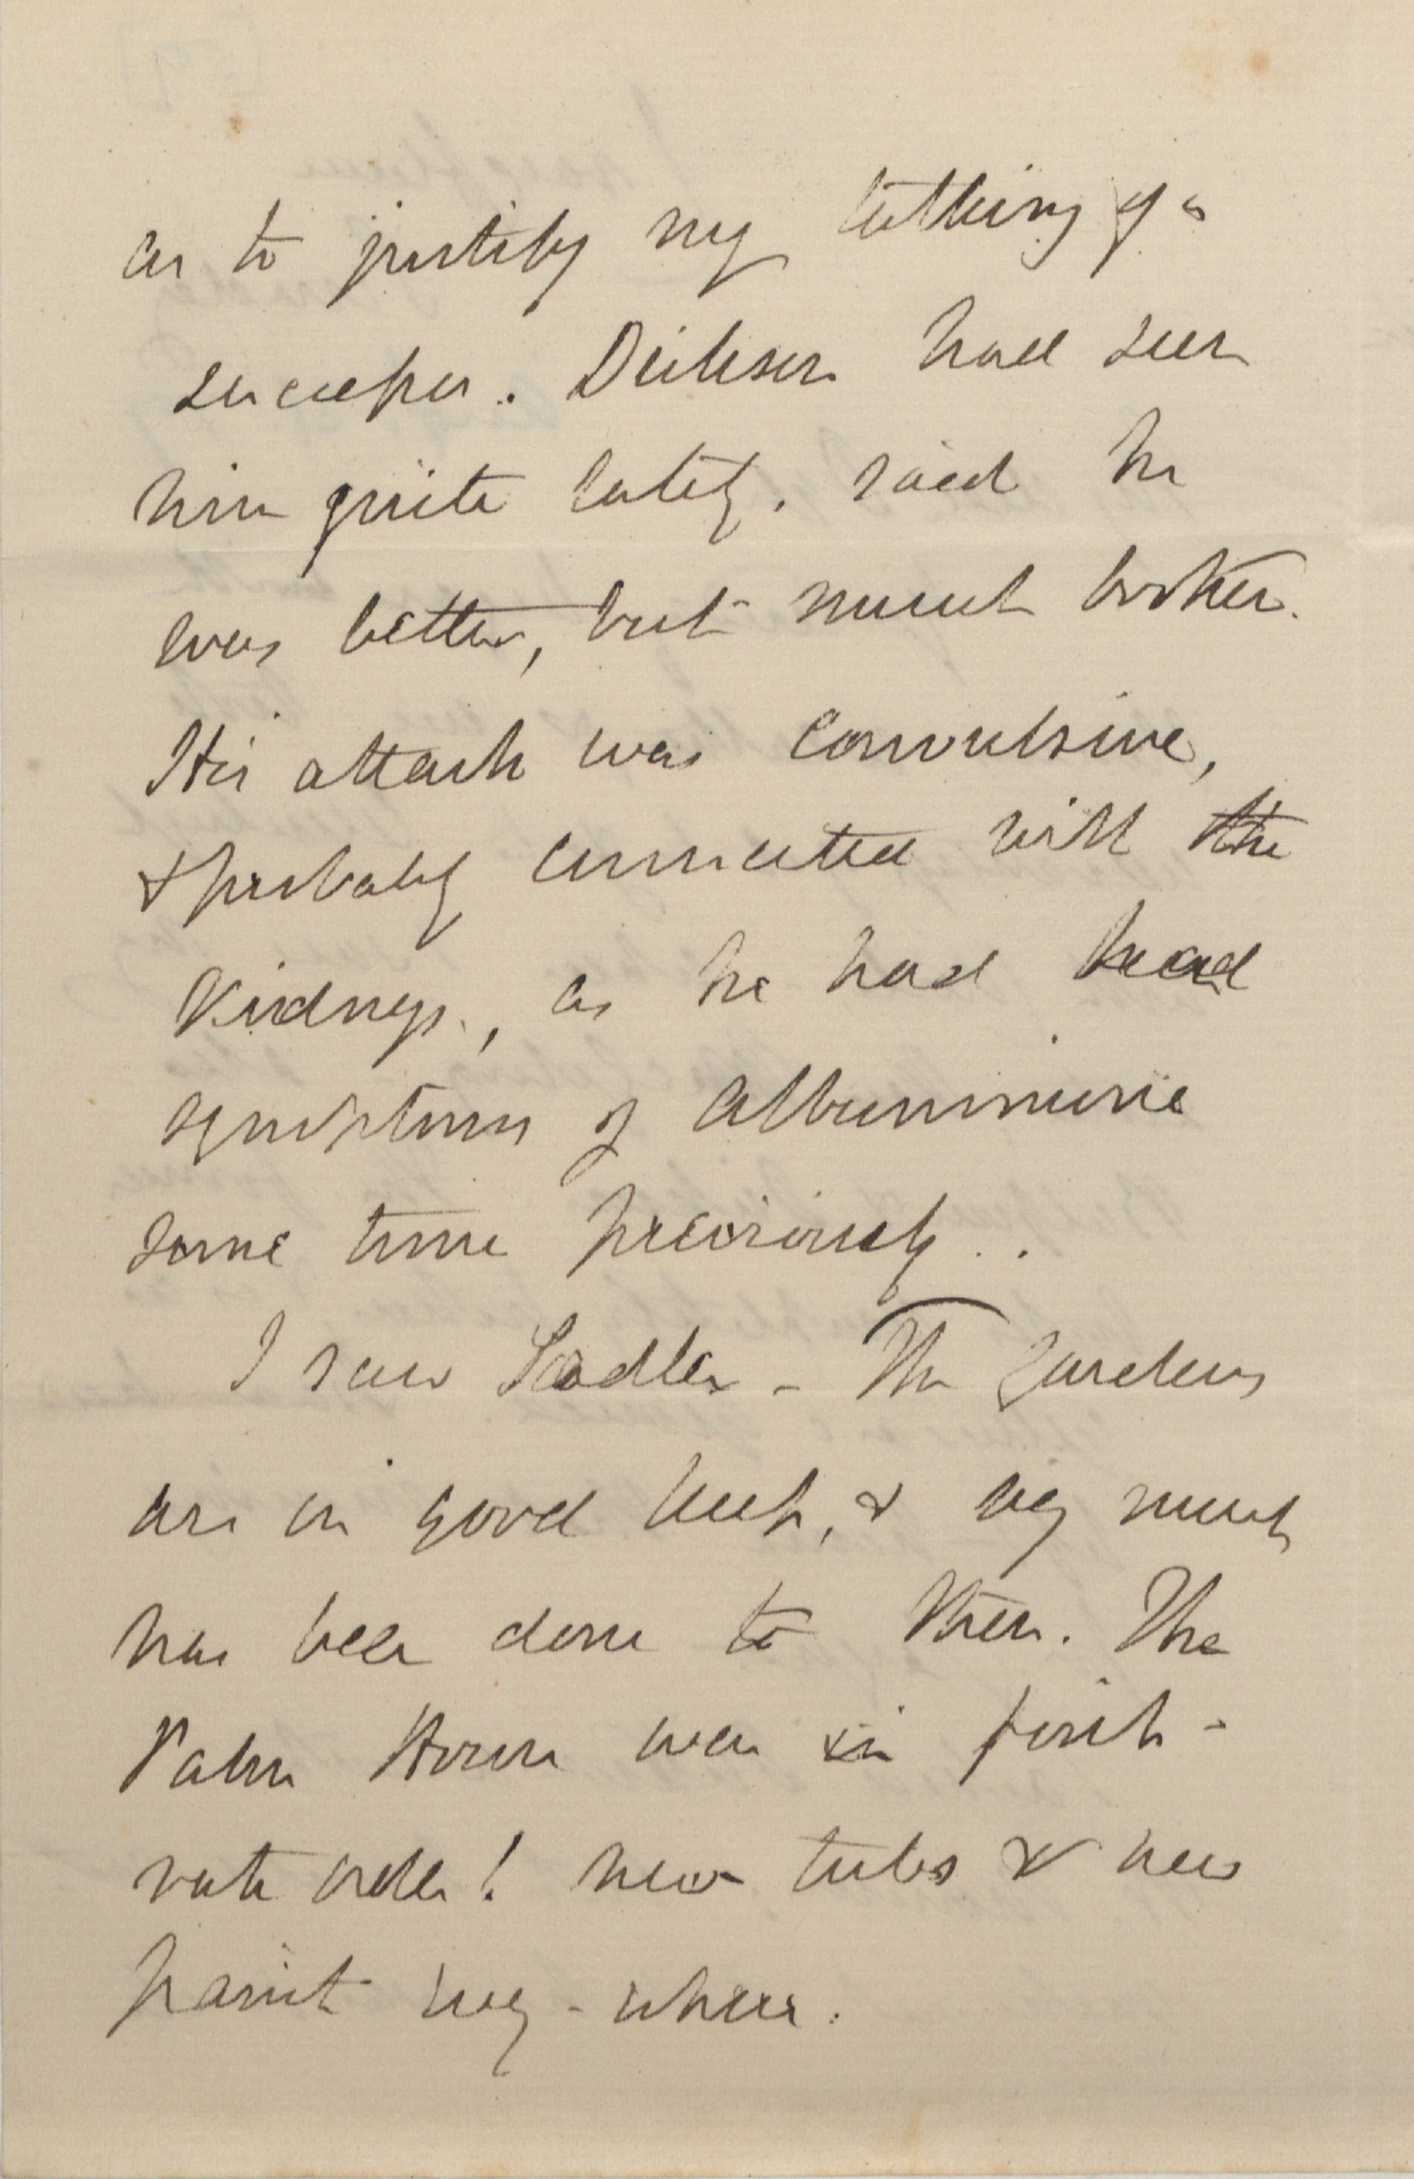 as to justify my talking of a
successor. Dickson had seen
him quite lately, said he
was better, but much broken.
His attack was convulsive,
& probably connected with the
Kidneys, as he had had
symptoms of Albuminurie
some time previously.
I saw Sadler – The Gardens
are in good keep, & very much
has been done to them. The
Palm House was in first-
rate order! new tubs & new
paint every-where.